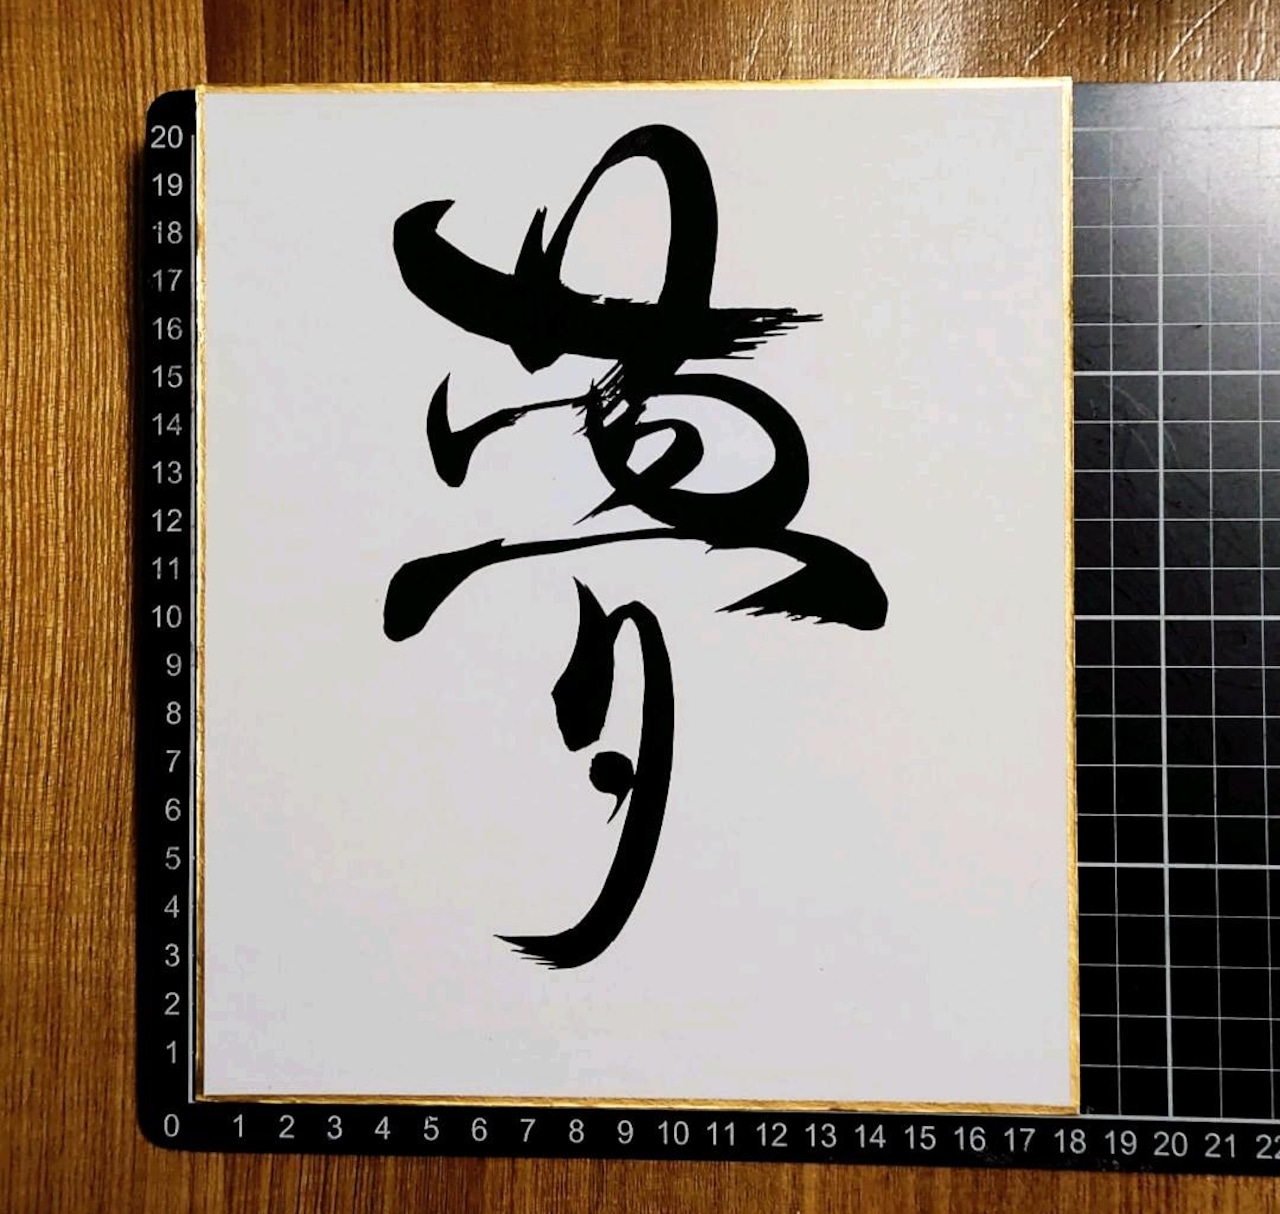 夢
20
19
18
17
16
15
14
13
12
11
10
9
8
7
6
5
4
3
2
1
0 1 2 3 4 5 6 7 8 9 10 11 12 13 14 15 16 17 18 19 20 21 22